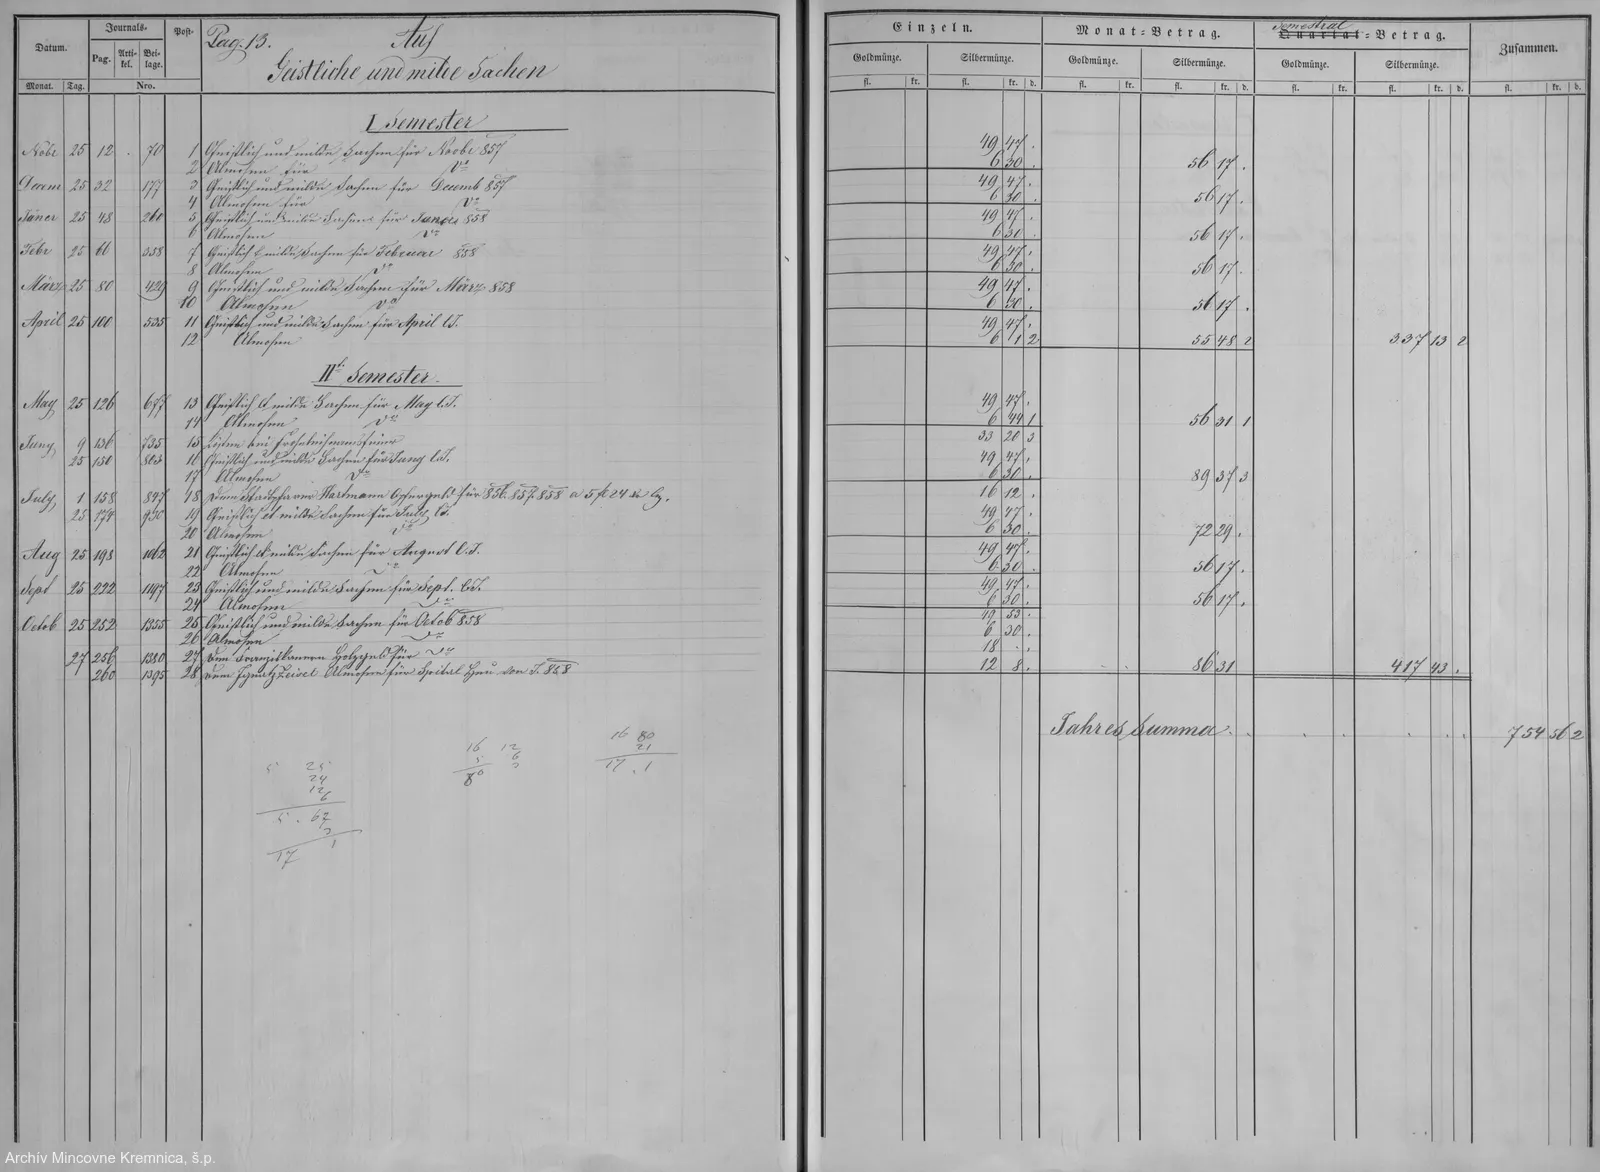 Datum.
Journals-
Post-
Pag. Arti-kel. Bei-lage.
Monat. Tag. Nro.
Pag. 13. Auf
Geistliche und milde Sachen
Einzeln. Monat-Betrag. Quartal-Betrag. Zusammen.
Semestral
Goldmünze. Silbermünze. Goldmünze. Silbermünze. Goldmünze. Silbermünze.
fl. kr. fl. kr. d. fl. kr. fl. kr. d. fl. kr. fl. kr. d. fl. kr. d.
I Semester
Nobr 25 12 . 70 1 Geistlich und milde Sachen für Novbr 857 49 47 .
2 Almosen für do 6 30 . 56 17 .
Decem 25 32 177 3 Geistlich und milde Sachen für Decemb 857 49 47 .
4 Almosen für do 6 30 . 56 17 .
Jäner 25 48 260 5 Geistlich und milde Sachen für Janer 858 49 47 .
6 Almosen do 6 30 . 56 17 .
Febr 25 66 358 7 Geistlich & milde Sachen für Februar 858 49 47 .
8 Almosen do 6 30 . 56 17 .
März 25 80 429 9 Geistlich und milde Sachen für März 858 49 47 .
10 Almosen do 6 30 . 56 17 .
April 25 100 535 11 Geistlich und milde Sachen für April l.J. 49 47 .
12 Almosen 6 1 2 55 48 2 337 13 2
IIt Semester
May 25 126 677 13 Geistlich & milde Sachen für May l.J. 49 47 .
14 Almosen do 6 44 1 56 31 1
Juny 9 136 735 15 bei 33 20 3
25 150 803 16 Geistlich und milde Sachen für Juny l.J. 49 47 .
17 Almosen do 6 30 . 89 37 3
July 1 158 847 18 Dem Stadtpfarrer Hartmann Opfergeld für 856. 857. 858 a 5 f 24 xr 16 12 .
25 174 930 19 Geistlich et milde Sachen für July l.J. 49 47 .
20 Almosen do 6 30 . 72 29 .
Aug 25 198 1062 21 Geistlich & milde Sachen für August l.J. 49 47 .
22 Almosen do 6 30 . 56 17 .
Sept 25 222 1197 23 Geistlich und milde Sachen für Sept. l.J. 49 47 .
24 Almosen do 6 30 . 56 17 .
Octob 25 252 1355 25 Geistlich und milde Sachen für Octob 858 49 53 .
26 Almosen do 6 30 .
27 256 1380 27 Dem Franziskanern Holzgeld für do 18 . .
260 1395 28 Dem Ignatz Almosen für Spital Heu von J. 858 12 8 . 86 31 417 43 .
Jahres Summa 754 56 2
16 80
21
17 . 1
16 12
5 6
80 3
5 25
24
12
6
5 . 67
3
17 1
Archív Mincovne Kremnica, š.p.